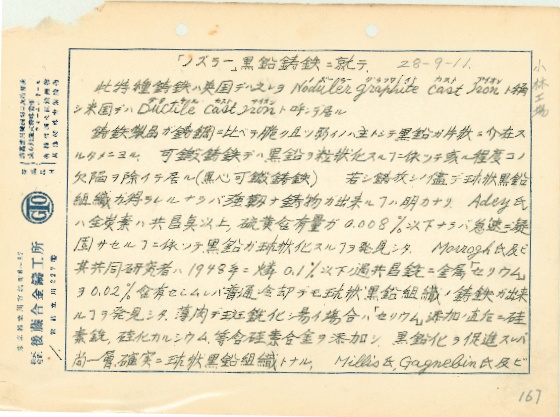 「ノズラー」黒鉛鋳鉄ニ就テ. 28-9-11.
小林工場
此特種鋳鉄ハ英国デハ之レヲ Noduler graphite cast iron ト稱
シ米国デハ Ductile cast iron ト呼ンデ居ル
鋳鉄製品ガ鋳鋼ニ比ベテ脆ク且ツ弱イハ主トシテ黒鉛ガ片状ニ介在ス
ルタメニヨル. 可鍛鋳鉄デハ黒鉛ヲ粒状化スルヿニ依ツテ或ル程度コノ
欠陥ヲ除イテ居ル(黒心可鍛鋳鉄) 若シ鋳放シノ儘デ球状黒鉛
組織ガ得ラレルナラバ強靭ナ鋳物ガ出来ルヿハ明カナリ. Adey氏
ハ全炭素ハ共晶臭以上, 硫黄含有量ガ 0.008%以下ナラバ急速ニ凝
固サセルヿニ依ツテ黒鉛ガ球状化スルヿヲ発見シタ. Morrogh氏及ビ
其共同研究者ハ 1948年ニ燐 0.1%以下ノ過共晶銑ニ金属「セリウム」
ヲ 0.02%含有セシムレバ普通冷却デモ球状黒鉛組織ノ鋳鉄ガ出来
ルヿヲ発見シタ. 薄肉デ斑銑化シ易イ場合ハ「セリウム」添加ノ直后ニ硅
素鉄, 硅化カルシウム, 等含硅素合金ヲ添加シ. 黒鉛化ヲ促進スレバ
尚一層, 確実ニ球状黒鉛組織トナル. Millis氏, Gagnebin氏及ビ
後藤合金鑄工所
GTO
167